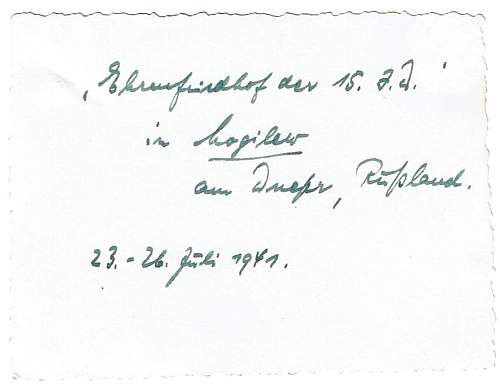 ‚Ehrenfriedhof der 15. J.D.‘
in Mogilew
am Dnepr, Rußland.
23.-26. Juli 1941.